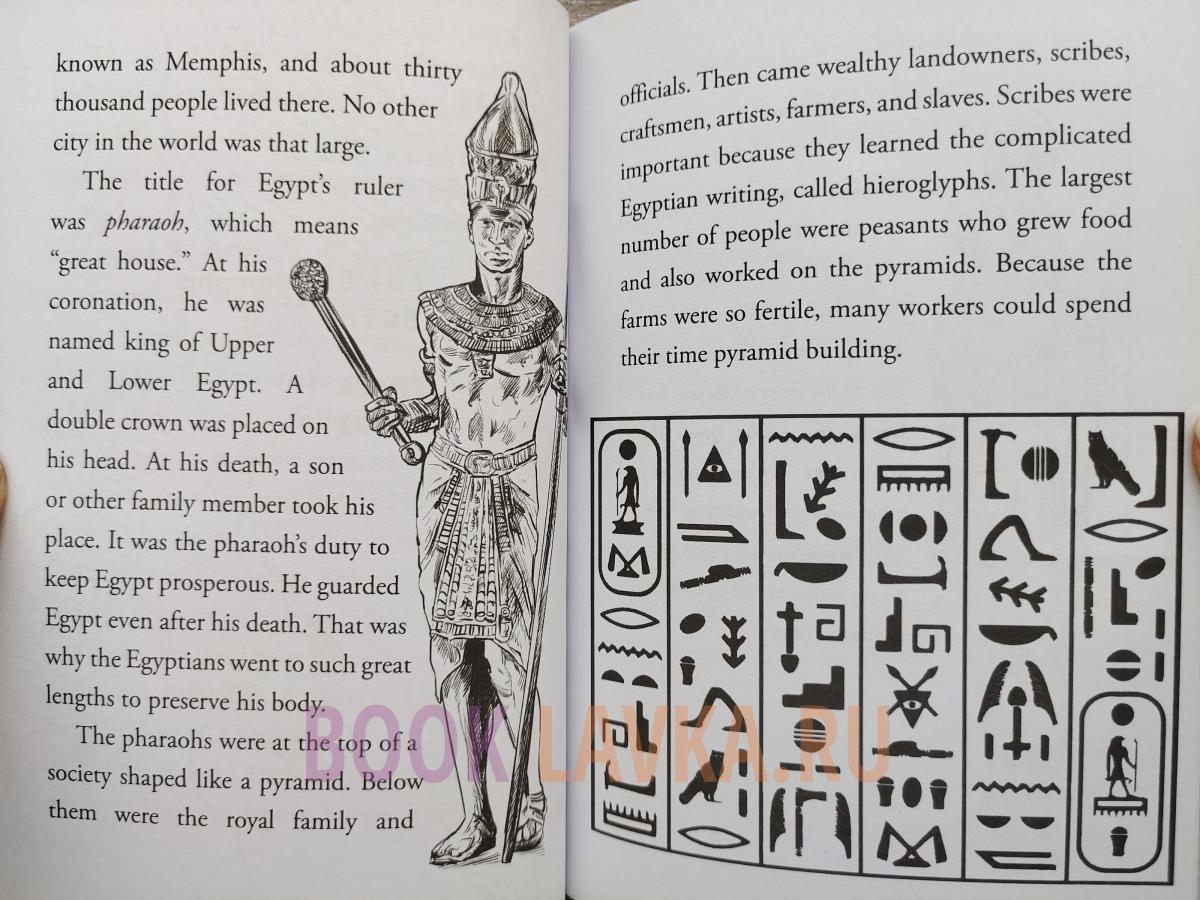 known as Memphis, and about thirty
thousand people lived there. No other
city in the world was that large.
The title for Egypt's ruler
was pharaoh, which means
“great house.” At his
coronation, he was
named king of Upper
and Lower Egypt. A
double crown was placed on
his head. At his death, a son
or other family member took his
place. It was the pharaoh's duty to
keep Egypt prosperous. He guarded
Egypt even after his death. That was
why the Egyptians went to such great
lengths to preserve his body.
The pharaohs were at the top of a
society shaped like a pyramid. Below
them were the royal family and
officials. Then came wealthy landowners, scribes,
craftsmen, artists, farmers, and slaves. Scribes were
important because they learned the complicated
Egyptian writing, called hieroglyphs. The largest
number of people were peasants who grew food
and also worked on the pyramids. Because the
farms were so fertile, many workers could spend
their time pyramid building.
BOOK LAVKA.RU